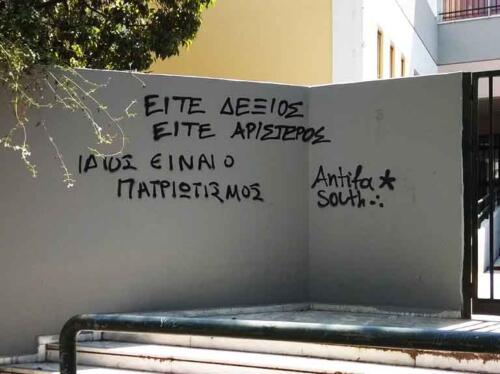 ΕΙΤΕ ΔΕΞΙΟΣ
ΕΙΤΕ ΑΡΙΣΤΕΡΟΣ
ΙΔΙΟΣ ΕΙΝΑΙ Ο
ΠΑΤΡΙΩΤΙΣΜΟΣ
Antifa *
South